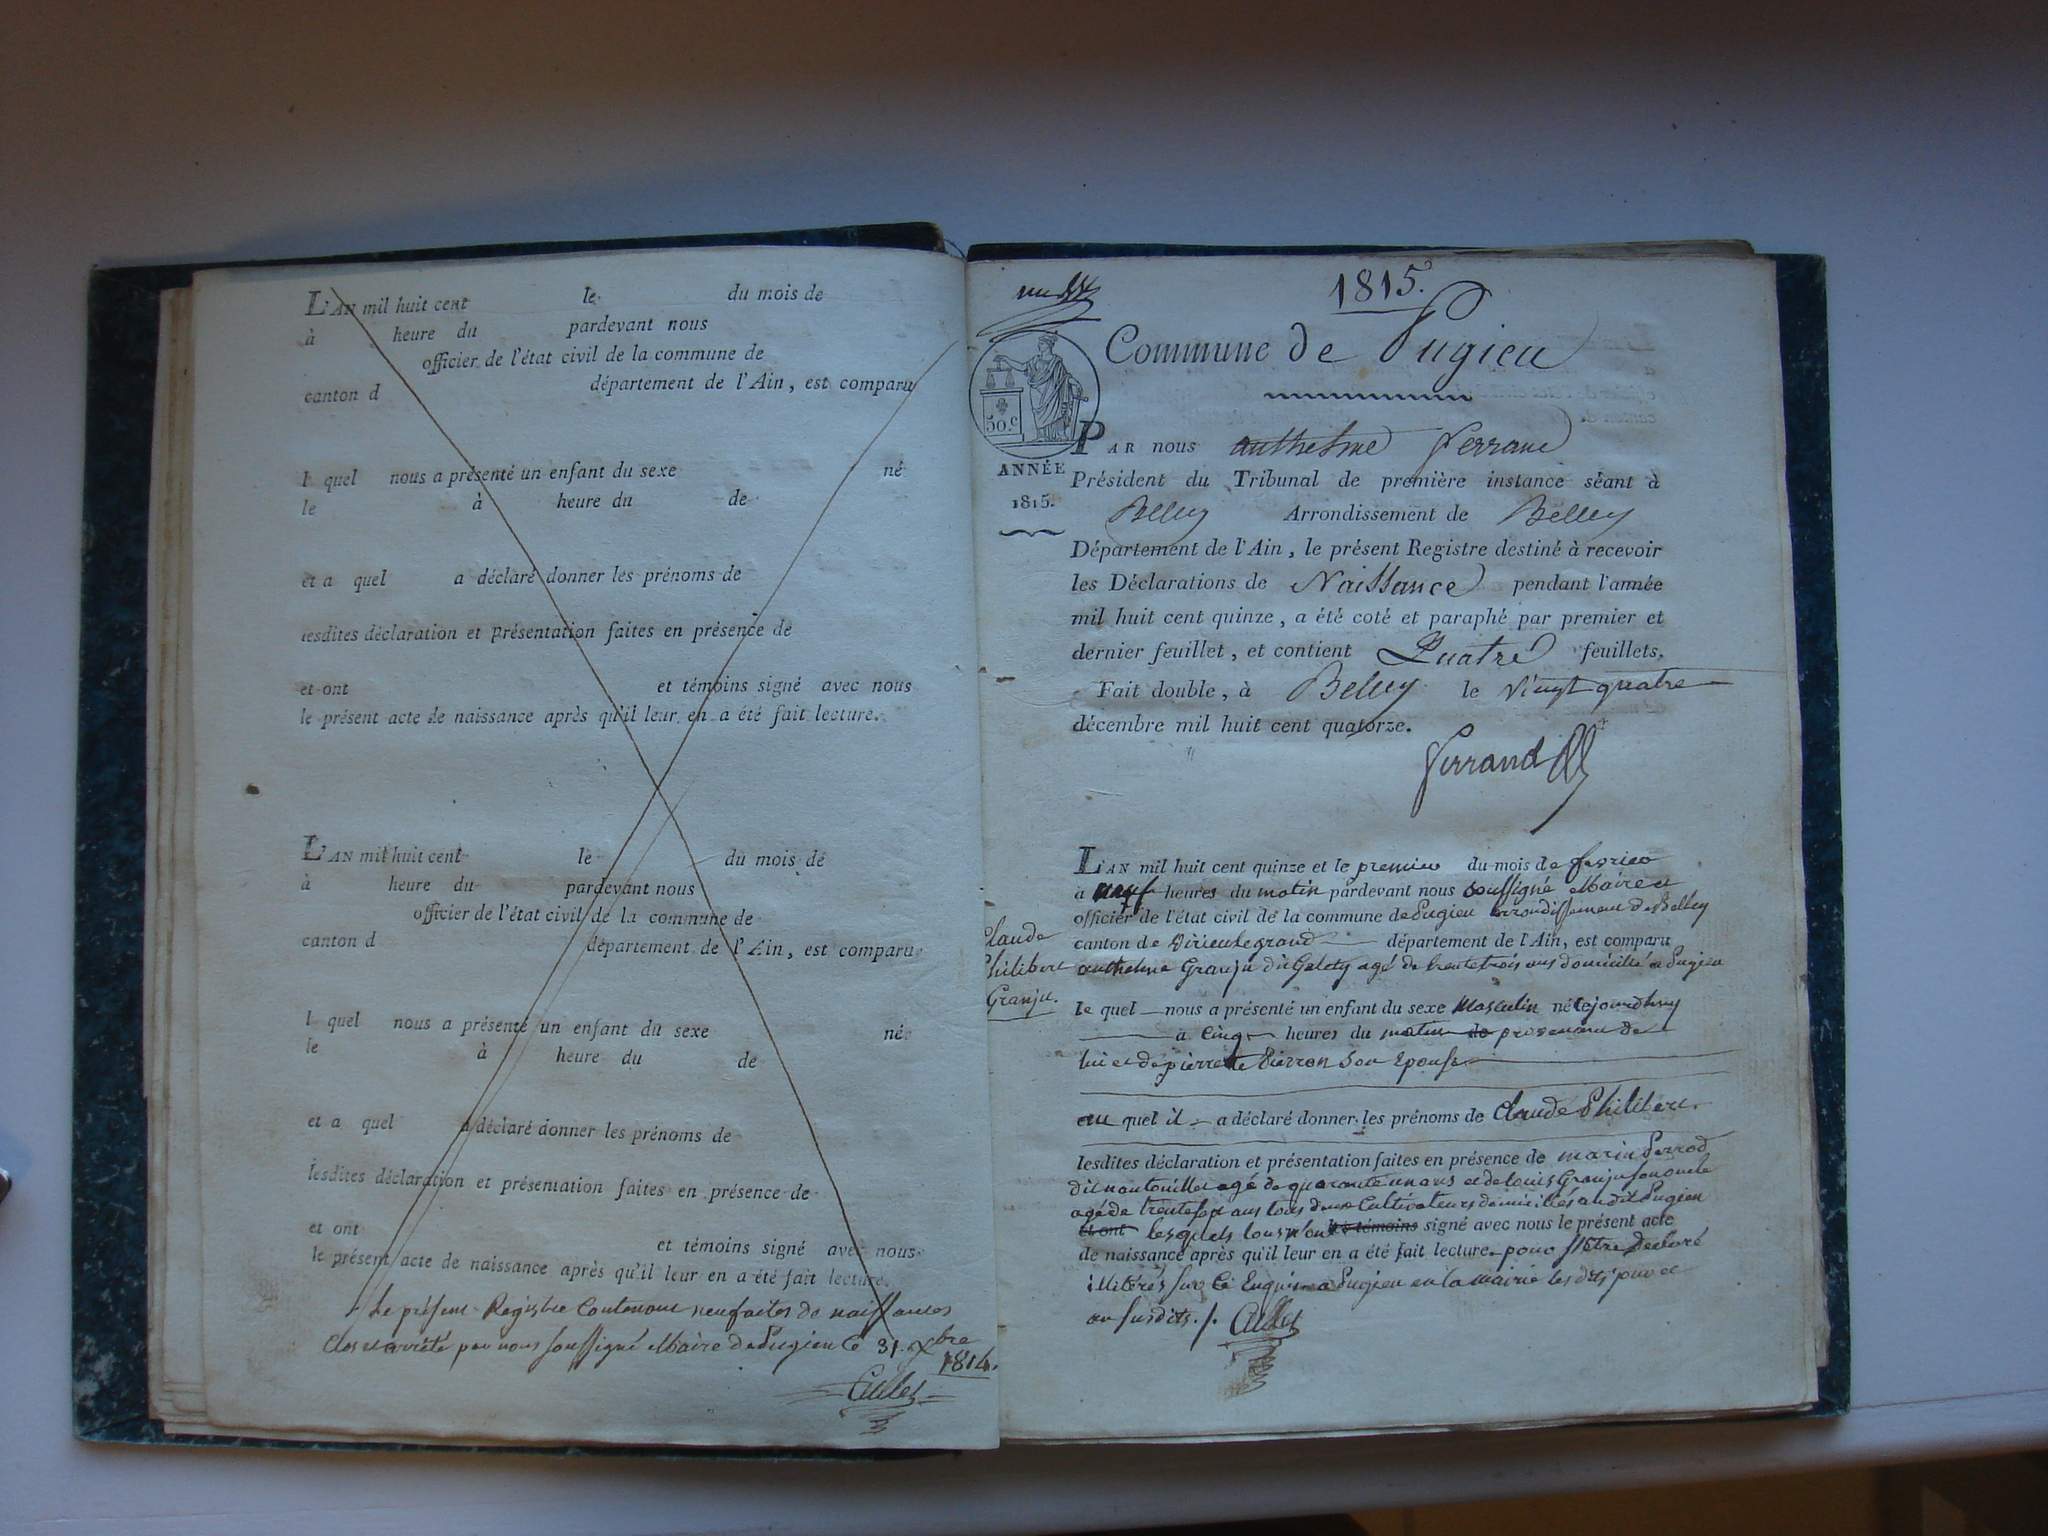 L'AN mil huit cent le du mois de
à heure du pardevant nous
officier de l'état civil de la commune de
canton d département de l'Ain, est comparu
l quel nous a présenté un enfant du sexe né
le à heure du de
et a quel a déclaré donner les prénoms de
lesdites déclaration et présentation faites en présence de
et ont et témoins signé avec nous
le présent acte de naissance après qu'il leur en a été fait lecture.
L'AN mil huit cent le du mois de
à heure du pardevant nous
officier de l'état civil de la commune de
canton d département de l'Ain, est comparu
l quel nous a présenté un enfant du sexe né
le à heure du de
et a quel a déclaré donner les prénoms de
lesdites déclaration et présentation faites en présence de
et ont et témoins signé avec nous
le présent acte de naissance après qu'il leur en a été fait lecture.
Le présent Registre Contenant neuf actes de naissances
Clos et arrêté par nous soussigné Maire de Pugieu le 31. Xbre
1814.
1815.
Commune de Pugieu
50.c
ANNÉE
1815.
PAR nous anthelme Ferrand
Président du Tribunal de première instance séant à
Belley Arrondissement de Belley
Département de l'Ain, le présent Registre destiné à recevoir
les Déclarations de Naissance pendant l'année
mil huit cent quinze, a été coté et paraphé par premier et
dernier feuillet, et contient Quatre feuillets.
Fait double, à Belley le vingt quatre
décembre mil huit cent quatorze.
Ferrand
Claude
Philibert
Granju.
L'AN mil huit cent quinze et le premier du mois de fevrier
a neuf heures du matin pardevant nous soussigné Maire et
officier de l'état civil de la commune de Pugieu arrondissement de Belley
canton de Virieu le grand département de l'Ain, est comparu
anthelme Granju dit Galety agé de trente trois ans domicilié a Pugieu
le quel nous a présenté un enfant du sexe Masculin né cejourdhuy
a cinq heures du matin de provenant de
lui et de pierrette Pierron son Epouse
au quel il a déclaré donner les prénoms de Claude Philibert.
lesdites déclaration et présentation faites en présence de marin Perrod
dit agé de quarante un ans et de louis Granju son oncle
agé de trente ans tous deux Cultivateurs domiciliés audit Pugieu
et ont lesquels tous n'ont et témoins signé avec nous le présent acte
de naissance après qu'il leur en a été fait lecture pour Declaré
illiterés sur ce Enquis a Pugieu en la mairie les dits jour et
an susdits./.